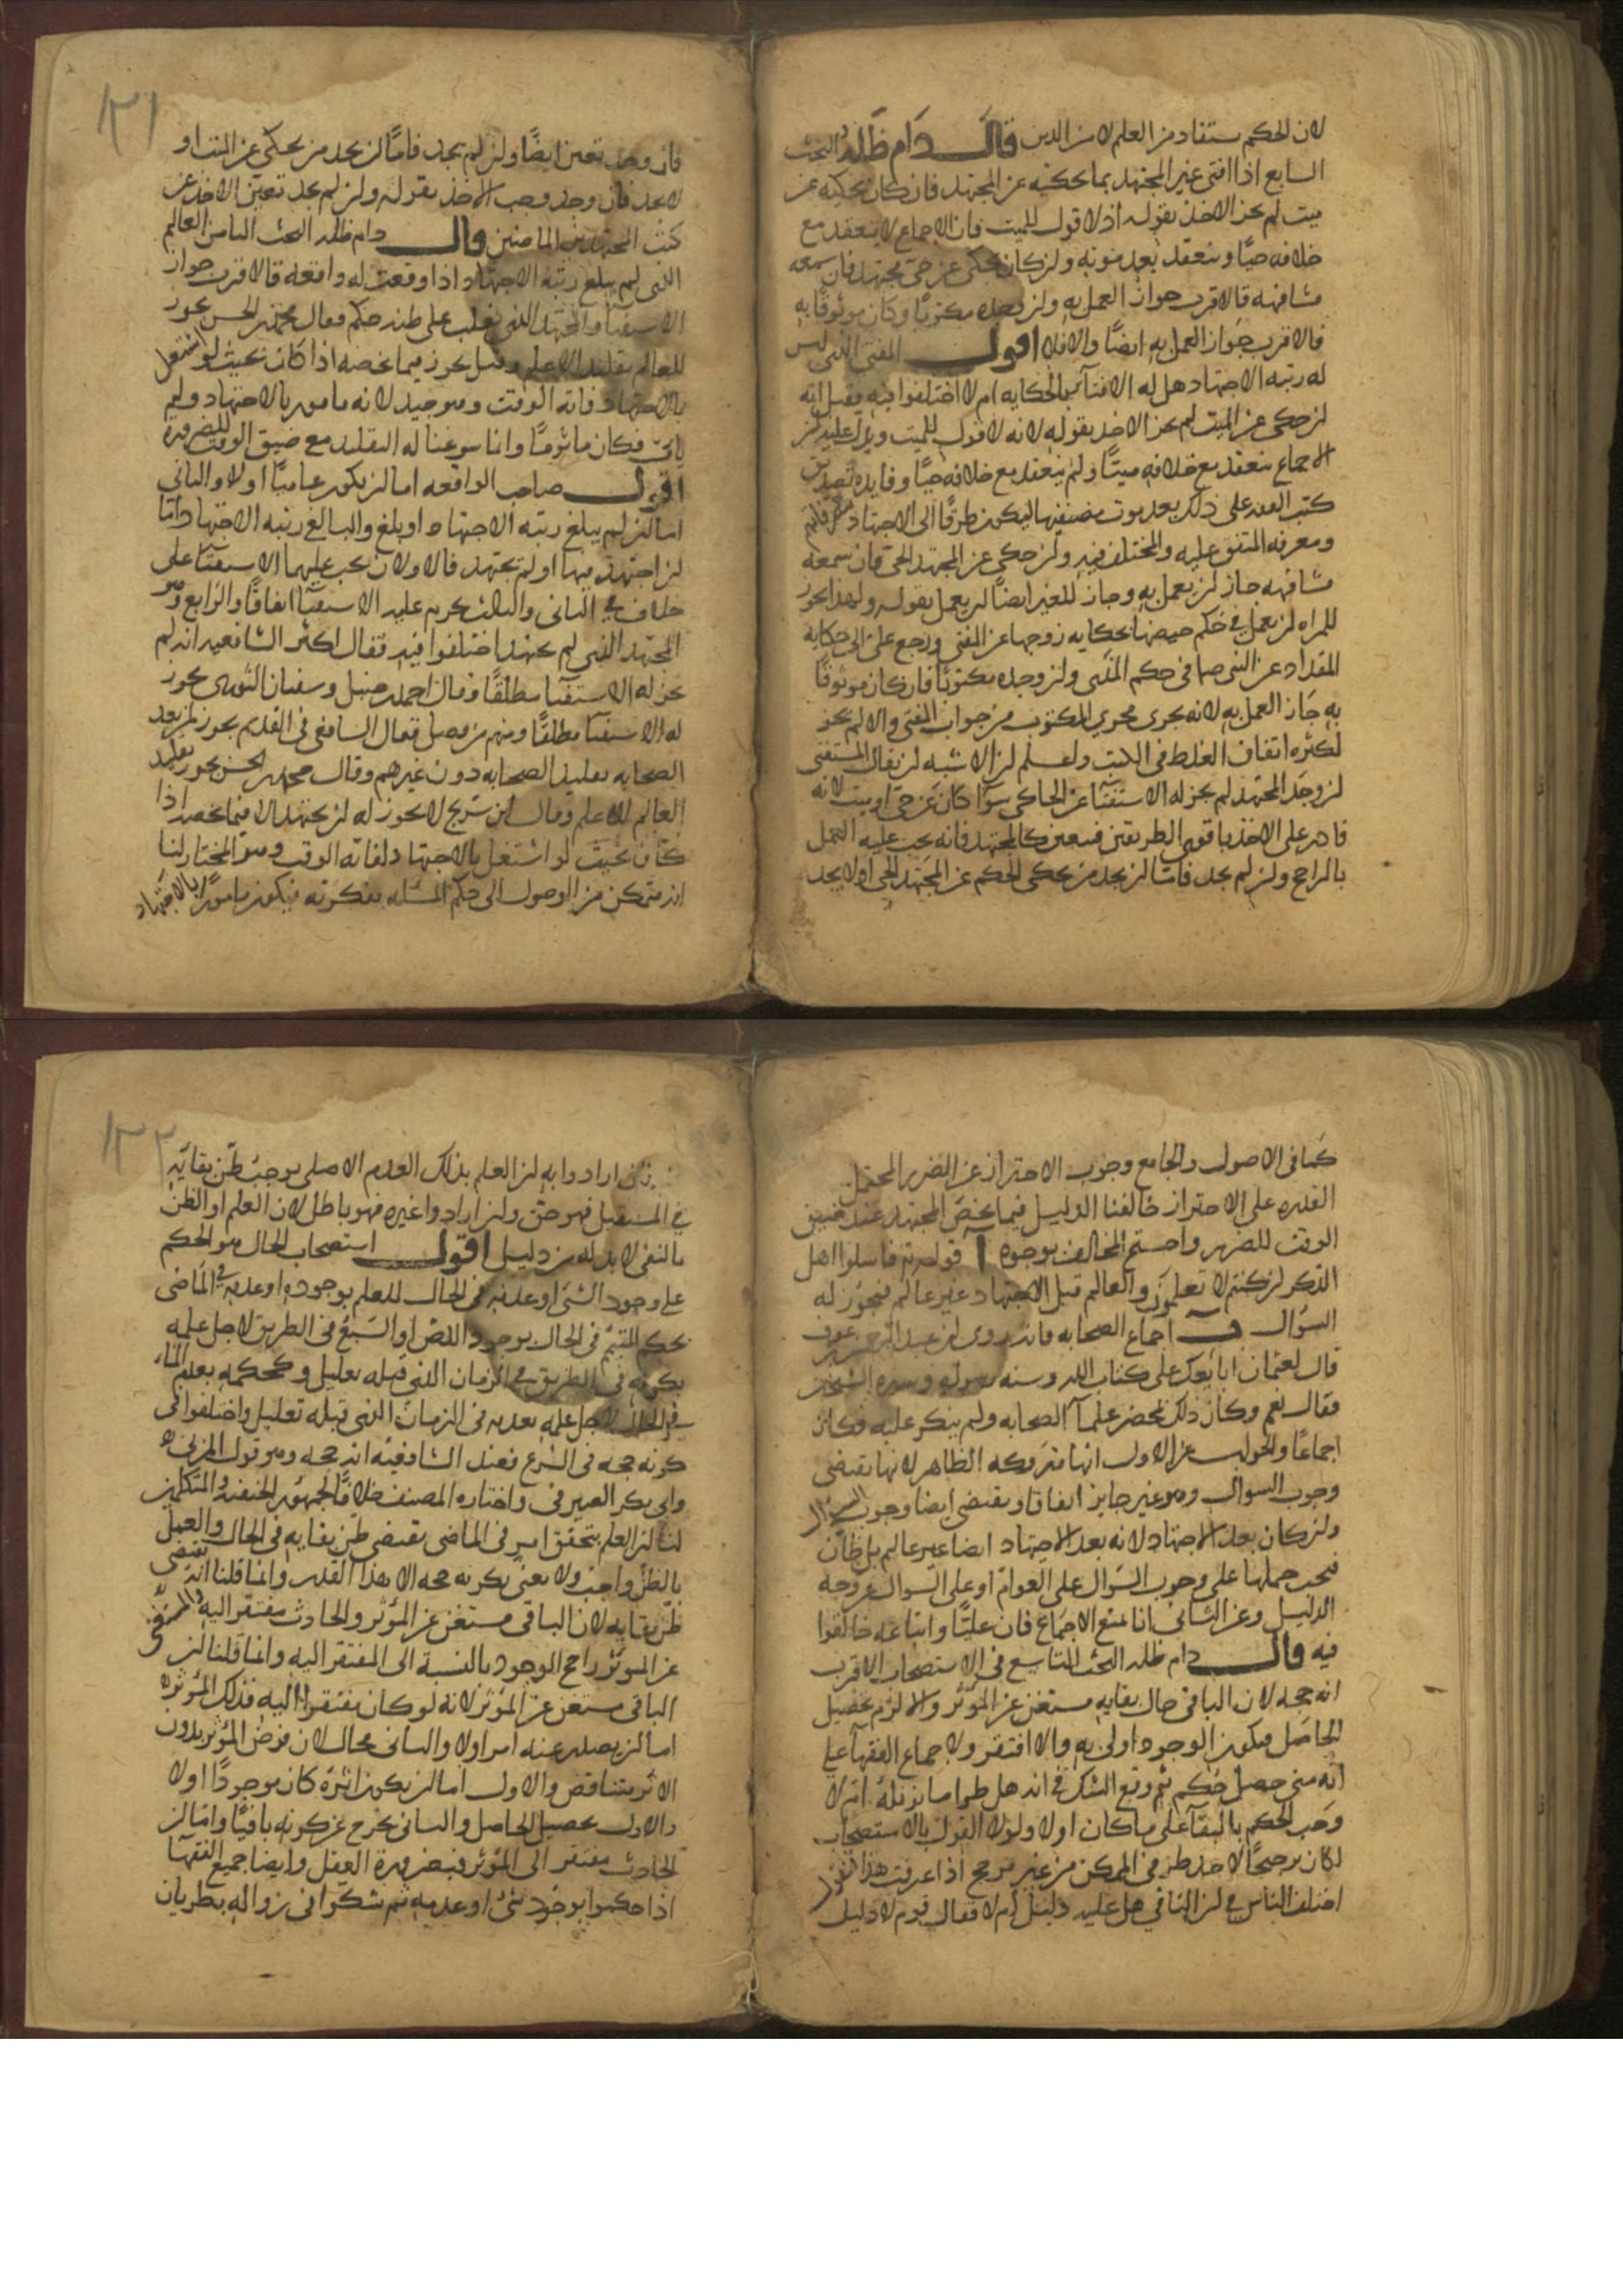 لان الحكم مستفاد من العلم لا من الدين قال دام ظله البحث
السابع اذا افتى غير المجتهد بما يحكيه عن المجتهد فان كان يحكيه عن
ميت لم يجز الاخذ بقوله اذ لا قول للميت فان الاجماع لا ينعقد مع
خلافه حيًا وينعقد بعد موته وان كان يحكى عن حى مجتهد فان سمعه
مشافهه فالاقرب جواز العمل به وان وجده مكتوبًا وكان موثوقًا به
فالاقرب جواز العمل به ايضًا والا فلا اقول المفتى الذى ليس
له رتبه الاجتهاد هل له الافتآ بالحكايه ام لا اختلفوا فيه فقيل انه
ان حكى عن الميت لم يجز الاخذ بقوله لانه لا قول للميت ويدل عليه ان
الاجماع ينعقد مع خلافه ميتًا ولم ينعقد مع خلافه حيًا وفايده تصنيف
كتب الفقه على ذلك بعد موت مصنفيها ليكون طرقًا الى الاجتهاد
ومعرفه المتفق عليه والمختلف فيه وان حكى عن المجتهد الحى فان سمعه
مشافهه جاز ان يعمل به وجاز للغير ايضًا ان يعمل بقوله ولهذا يجوز
للمراه ان يعمل فى حكم حيضها بحكايه زوجها عن المفتى ورجع على الى حكايه
المقداد عن النبى صا فى حكم المذى وان وجده مكتوبًا فان كان موثوقًا
به جاز العمل به لانه يجرى مجرى المكتوب من جواب المفتى والا لم يجز
لكثره اتفاق الغلط فى الكتب ولعلم ان الاشبه ان يقال المستفتى
ان وجد المجتهد لم يجز له الاستفتآ عن الحاكى سوآ كان عن حى او ميت لانه
قادر على الاخذ باقوى الطريقين فيتعين كالمجتهد فانه يجب عليه العمل
بالراجح وان لم يجد فاما ان يجد من يحكى الحكم عن المجتهد الحى او لا يجد
١٣١
فان وجد تعين ايضًا وان لم يجد فامّا ان يجد من يحكى عن الميت او
لا يجد فان وجد وجب الاخذ بقوله وان لم يجد تعين الاخذ عن
كتب المجتهدين الماضين قال دام ظله البحث الثامن العالم
الذى لم يبلغ رتبة الاجتهاد اذا وقعت له واقعه فالاقرب جواز
الاستفتا والمجتهد الذى يغلب على ظنه حكم فقال محمد بن الحسن يجوز
للعالم تقليد الاعلم وقيل يجوز فيما يخصه اذا كان بحيث لو اشتغل
بالاجتهاد فاته الوقت وهو جيد لانه مامور بالاجتهاد ولم
يات فكان ماثومًا وانما سوغنا له التقليد مع ضيق الوقت للضروره
اقول صاحب الواقعه اما ان يكون عاميًا او لا والثانى
اما ان لم يبلغ رتبه الاجتهاد او بلغ والبالغ رتبه الاجتهاد امّا
ان اجتهد فيها او لم يجتهد فالاولان يجب عليهما الاستفتا على
خلاف فى الثانى والثالث يحرم عليه الاستفتآ اتفاقًا والرابع وهو
المجتهد الذى لم يجتهد اختلفوا فيه فقال اكثر الشافعيه انه لم
يجز له الاستفتآ مطلقًا وقال احمد حنبل وسفيان الثورى يجوز
له الاستفتا مطلقًا ومنهم من فصل فقال الشافعى فى القديم يجوز لمن بعد
الصحابه تقليد الصحابه دون غيرهم وقال محمد بن الحسن يجوز تقليد
العالم للاعلم وقال ابن سريج لا يجوز له ان يجتهد الا فيما يخصه اذا
كان بحيث لو اشتغل بالاجتهاد لفاته الوقت وهو المختار لنا
انه متمكن من الوصول الى حكم المسئله بفكرته فيكون مامورًا بالاجتهاد
كما فى الاصول والجامع وجوب الاحتراز عن الضرر المحتمل
القدره على الاحتراز خالفنا الدليل فيما يخص المجتهد عند ضيق
الوقت للضرر واحتج المخالف بوجوه آ قوله تع فاسلوا اهل
الذكر ان كنتم لا تعلمون والعالم قبل الاجتهاد غير عالم فيجوز له
السؤال ب اجماع الصحابه فانه روى ان عبد الرحمن بن عوف
قال لعثمان ابايعك على كتاب الله وسنه رسوله وسيره الشيخين
فقال نعم وكان ذلك بمحضر علمآ الصحابه ولم ينكر عليه فكان
اجماعًا والجواب عن الاول انها متروكه الظاهر لانها تقتضى
وجوب السوال وهو غير جايز اتفاقا ويقتضى ايضا وجوب السوال
وان كان بعد الاجتهاد لانه بعد الاجتهاد ايضا غير عالم بل ظان
فيجب حملها على وجوب السؤال على العوام او على السوال عن وجه
الدليل وعن الثانى انا نمنع الاجماع فان عليًا واتباعه خالفوا
فيه قال دام ظله البحث التاسع فى الاستصحاب الاقرب
انه حجه لان الباقى حال بقايه مستغن عن المؤثر والا لزم تحصيل
الحاصل فيكون الوجود اولى به والا افتقر ولاجماع الفقهآ على
انه متى حصل حكم ثم وقع الشك فى انه هل طرا ما يزيله ام لا
وجب الحكم بالبقآ على ما كان اولا ولولا القول بالاستصحاب
لكان ترجيحًا لاحد طرفى الممكن من غير مرجح اذا عرفت هذا فنقول
اختلف الناس فى ان النافى هل عليه دليل ام لا فقال قوم لا دليل
١٣٢
فان ارادوا به ان العلم بذلك العدم الاصلى يوجب ظن بقائه
فى المستقبل فهو حق وان ارادوا غيره فهو باطل لان العلم او الظن
بالنفى لا بد له من دليل اقول استصحاب الحال هو الحكم
على وجود الشئ او عدمه فى الحال للعلم بوجوده او عدمه فى الماضى
بحكم المتيمم فى الحال بوجود اللص او السبع فى الطريق لاجل علمه
بكونه فى الطريق فى الزمان الذى قبله بقليل وكحكمه بعدم الماء
فى الحال لاجل علمه بعدمه فى الزمان الذى قبله بقليل واختلفوا فى
كونه حجه فى الشرع فعند الشافعيه انه حجه وهو قول المزنى
وابى بكر الصيرفى واختاره المصنف خلافًا لجمهور الحنفيه والمتكلمين
لنا ان العلم بتحقق امر فى الماضى يقتضى ظن بقايه فى الحال والعمل
بالظن واجب ولا نعنى بكونه حجه الا هذا القدر وانما قلنا انه يقتضى
ظن بقايه لان الباقى مستغن عن المؤثر والحادث مفتقر اليه والمستغنى
عن المؤثر راجح الوجود بالنسبة الى المفتقر اليه وانما قلنا ان
الباقى مستغن عن المؤثر لانه لو كان مفتقرا اليه فذلك المؤثر
اما ان يصدر عنه امر او لا والثانى محال لان فرض المؤثر بدون
الاثر متناقض والاول اما ان يكون اثره كان موجودًا او لا
والاول تحصيل الحاصل والثانى يخرج عن كونه باقيًا واما ان
الحادث مفتقر الى المؤثر فبضرورة العقل وايضا جميع الفقهآ
اذا حكموا بوجود شئ او عدمه ثم شكوا فى زواله بطريان